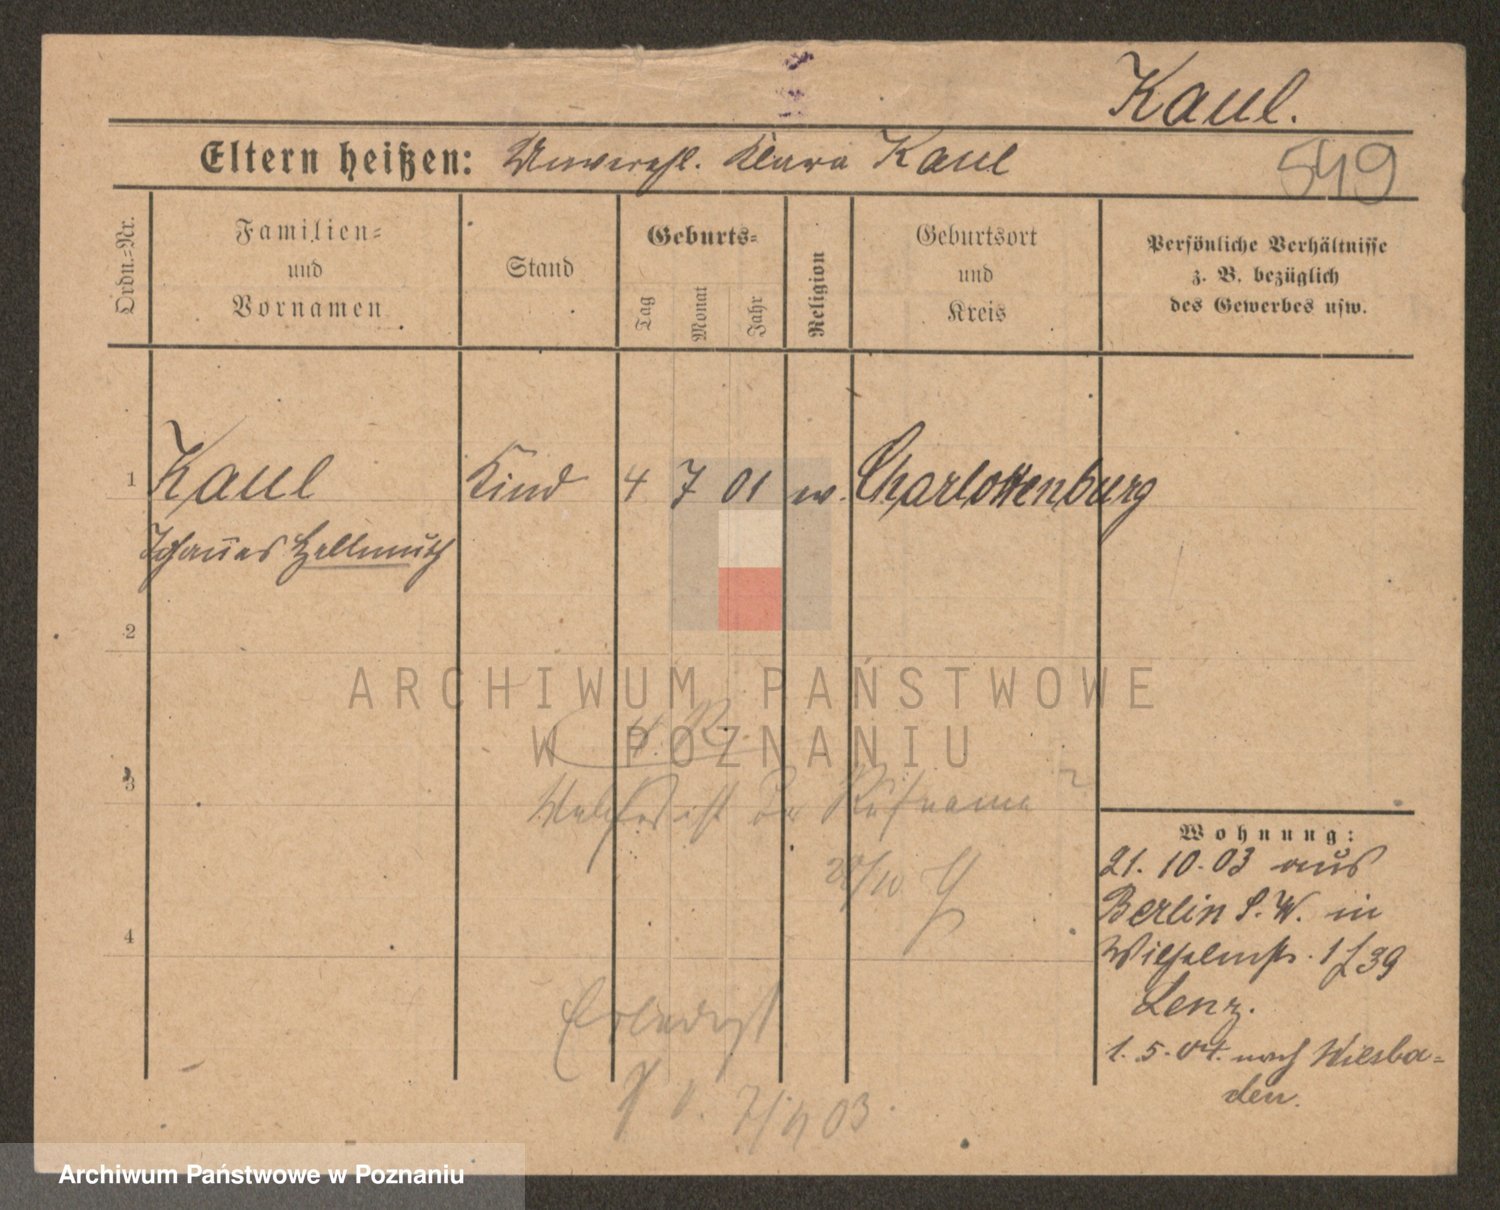 Kaul.
Eltern heißen: Unverehl. Klara Kaul
549
Ordn.-Nr.
Familien-
und
Vornamen
Stand
Geburts-
Tag
Monat
Jahr
Religion
Geburtsort
und
Kreis
Persönliche Verhältnisse
z. B. bezüglich
des Gewerbes usw.
1 Kaul Kind 4 7 01 ev. Charlottenburg
Johannes Hellmuth
2
ARCHIWUM PAŃSTWOWE
W POZNANIU
3
Welches ist der Rufname ?
4
Erledigt
7/11 03.
Wohnung:
21. 10. 03 aus
Berlin S. W. in
Wilhelmstr. 1 f 39
Lenz.
1. 5. 04. nach Wiesba-
den.
Archiwum Państwowe w Poznaniu